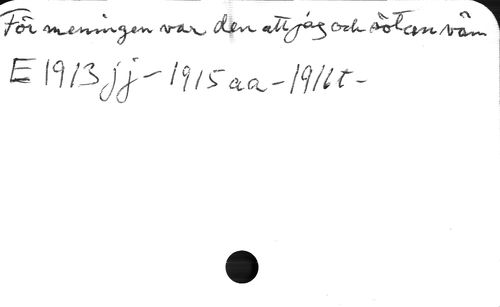 För meningen var den att jag och
E 1913 jj - 1915 aa - 1916 t -